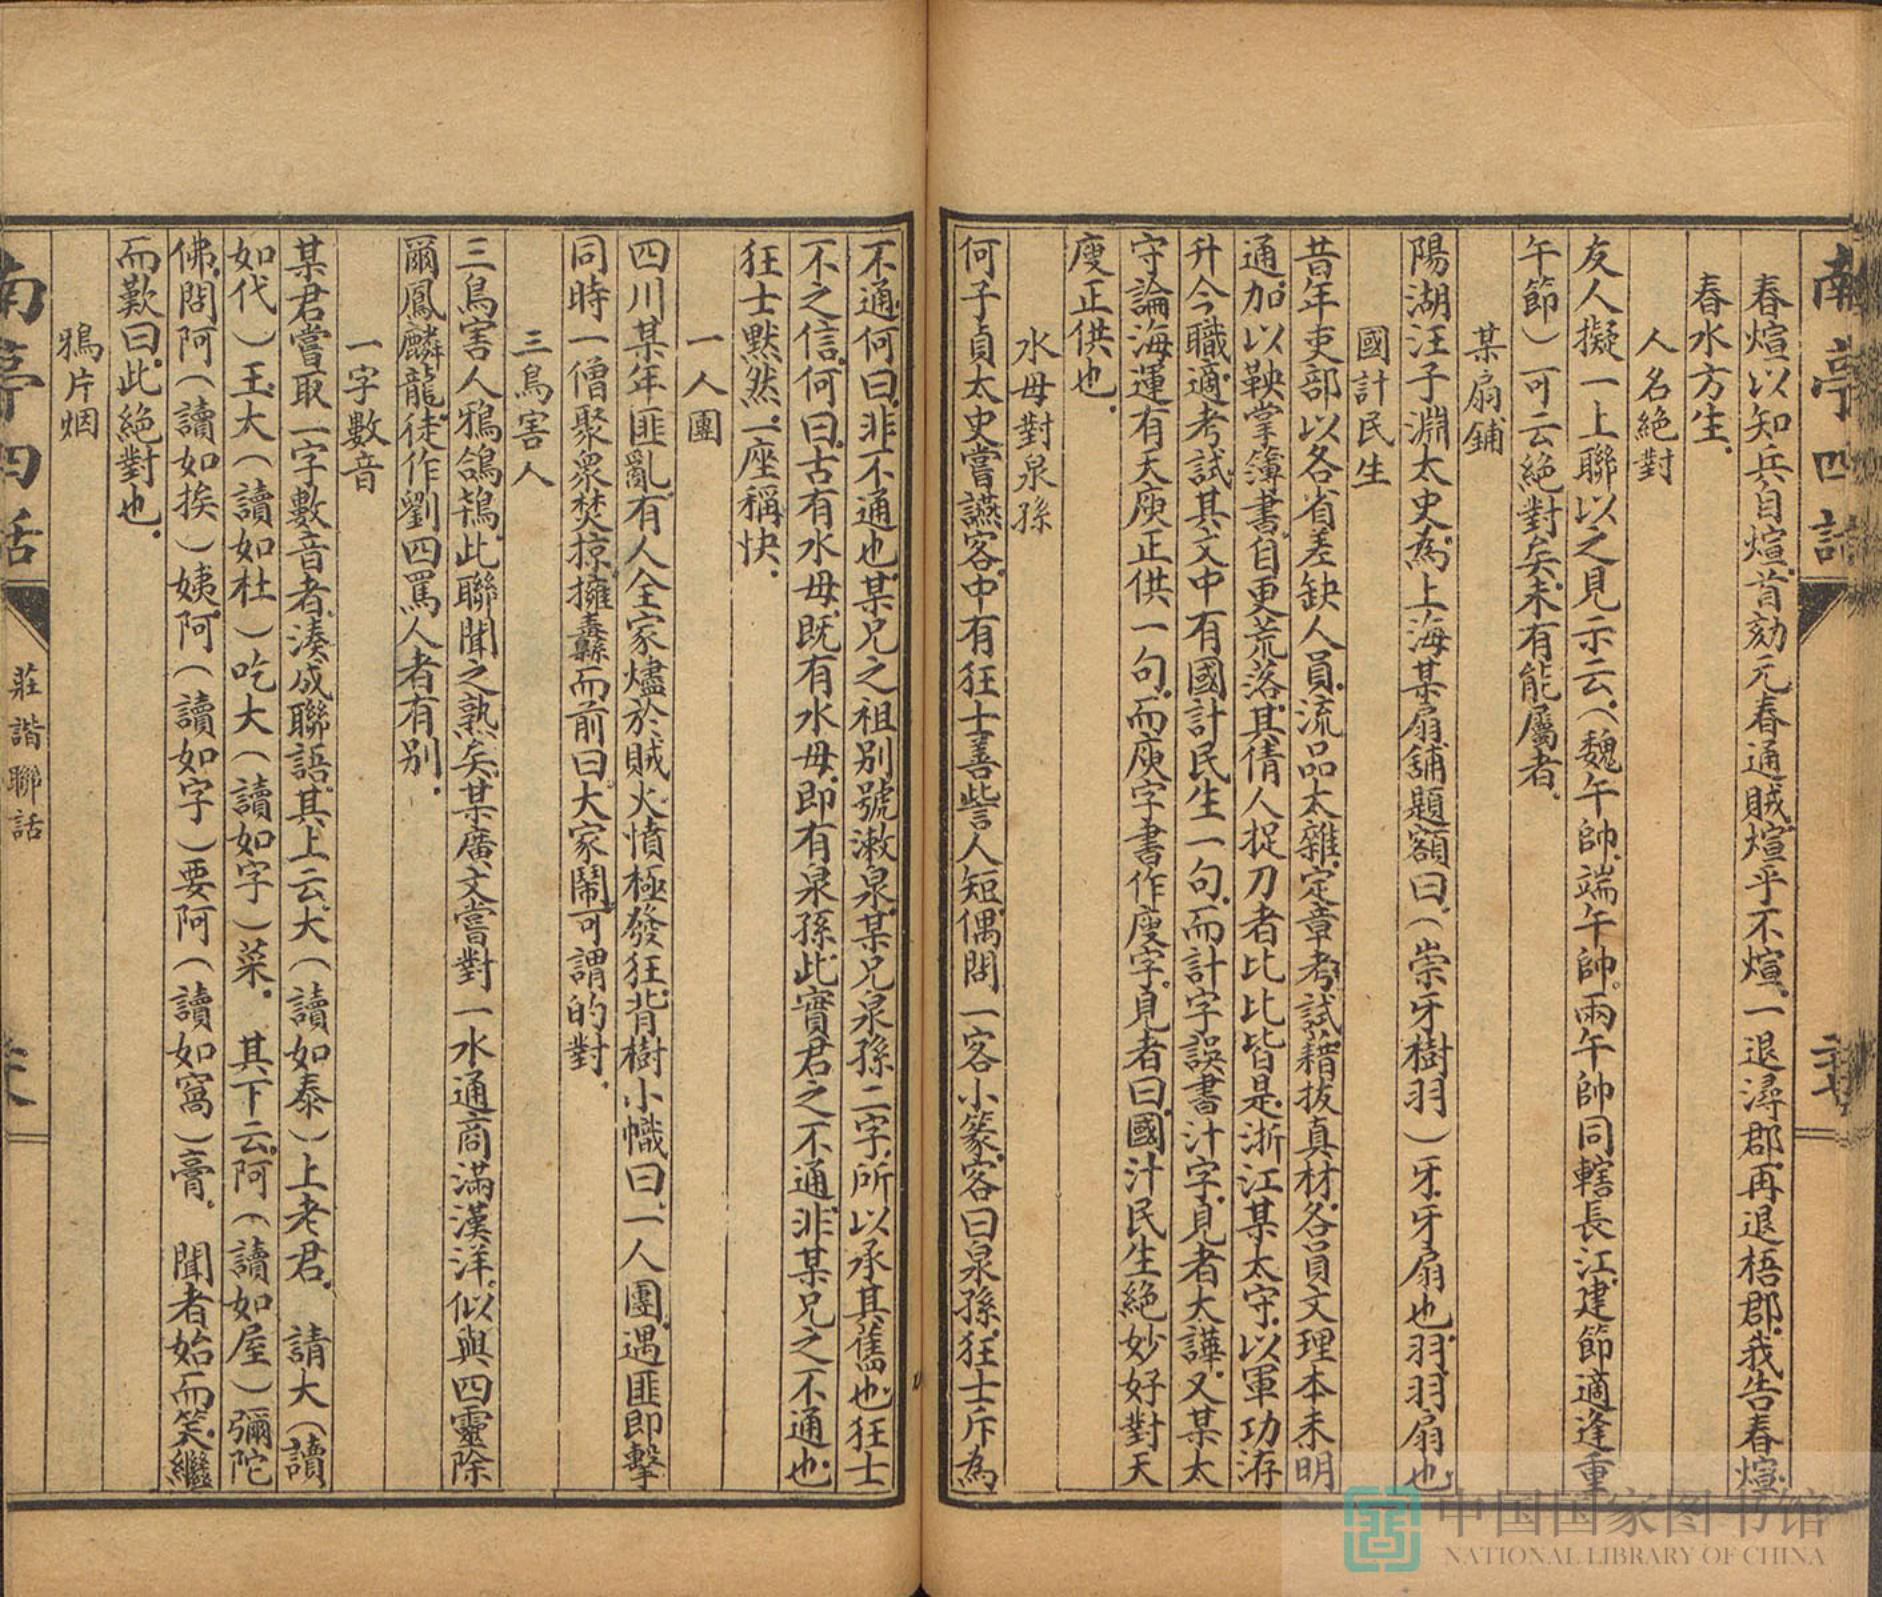 南亭四話
春煊以知兵自煊首劾元春通賊煊乎不煊一退潯郡再退梧郡我告春煊
春水方生
人名絕對
友人擬一上聯以之見示云（魏午帥端午帥兩午帥同轄長江建節適逢重
午節）可云絕對矣未有能屬者
某扇鋪
陽湖汪子淵太史為上海某扇舖題額曰（崇牙樹羽）牙牙扇也羽羽扇也
國計民生
昔年吏部以各省差缺人員流品太雜定章考試藉拔真材各員文理本未明
通加以鞅掌簿書自更荒落其倩人捉刀者比比皆是浙江某太守以軍功洊
升今職適考試其文中有國計民生一句而計字誤書汁字見者大譁又某太
守論海運有天庾正供一句而庾字書作廋字見者曰國汁民生絕妙好對天
廋正供也
水母對泉孫
何子貞太史嘗讌客中有狂士善訾人短偶問一客小篆客曰泉孫狂士斥為
不通何曰非不通也某兄之祖別號漱泉某兄泉孫二字所以承其舊也狂士
不之信何曰古有水母既有水母即有泉孫此實君之不通非某兄之不通也
狂士默然一座稱快
一人團
四川某年匪亂有人全家燼於賊火憤極發狂背樹小幟曰一人團遇匪即擊
同時一僧聚眾焚掠擁纛而前曰大家鬧可謂的對
三鳥害人
三鳥害人鴉鴿鴇此聯聞之熟矣某廣文嘗對一水通商滿漢洋似與四靈除
爾鳳麟龍徒作劉四罵人者有別
一字數音
某君嘗取一字數音者湊成聯語其上云大（讀如泰）上老君　請大（讀
如代）王大（讀如杜）吃大（讀如字）菜　其下云阿（讀如屋）彌陀
佛問阿（讀如挨）姨阿（讀如字）要阿（讀如窩）膏　聞者始而笑繼
而歎曰此絕對也
鴉片烟
南亭四話
莊諧聯話
中国国家图书馆
NATIONAL LIBRARY OF CHINA